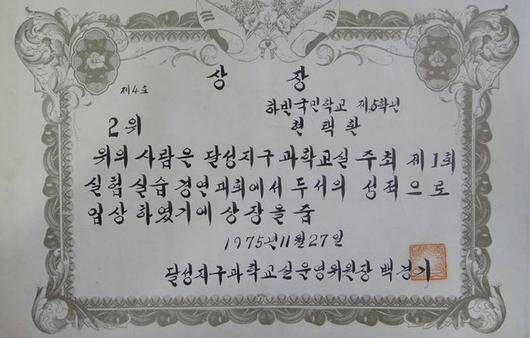 상 장
제4호
하빈국민학교 제5학년
2위 현택환
위의 사람은 달성지구 과학교실 주최 제1회
실험 실습 경연 대회에서 두서의 성적으로
입상 하였기에 상장을 줌
1975년 11월 27일
달성지구과학교실운영위원장 백경기